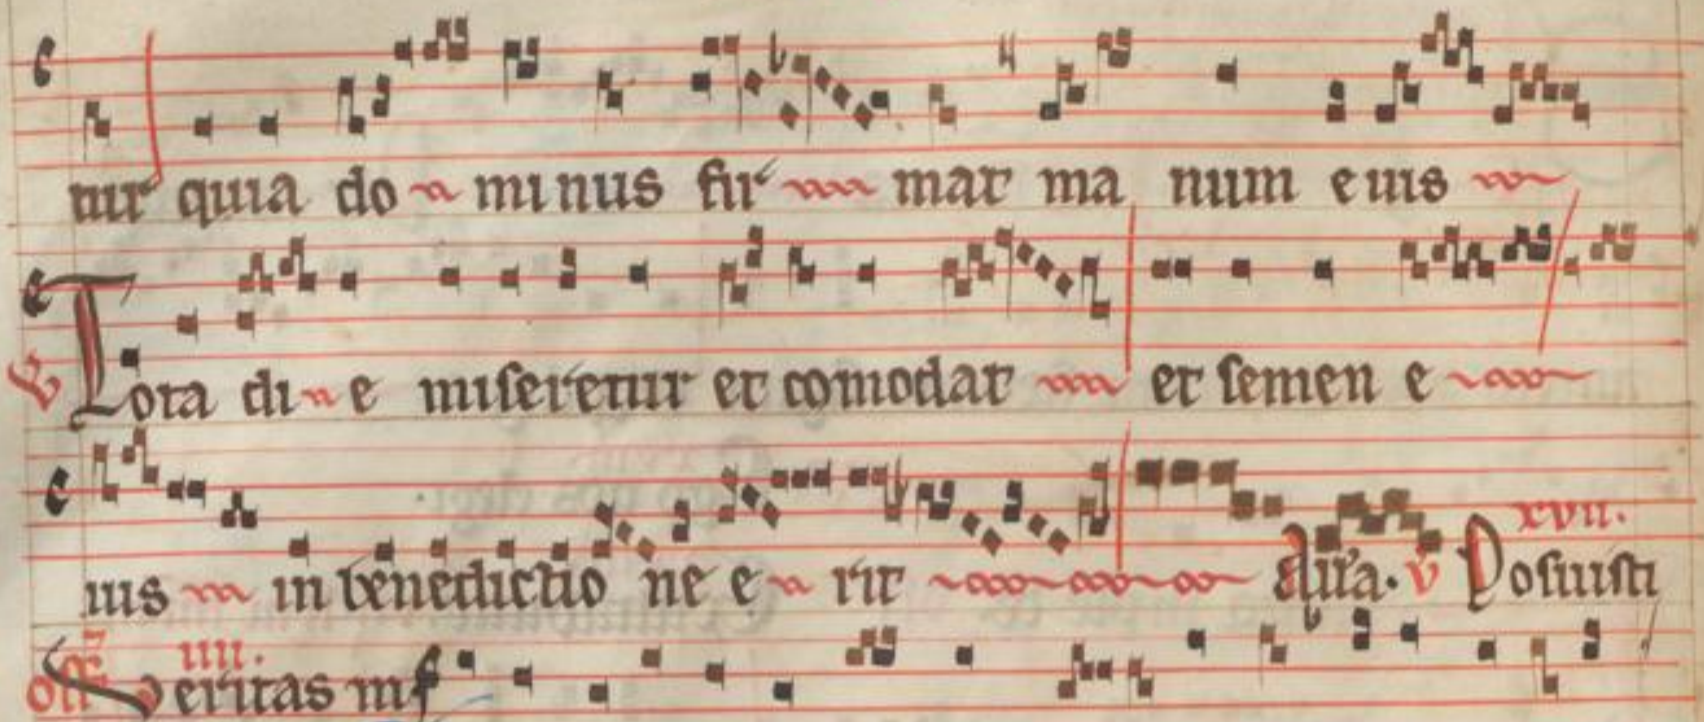 tur quia do minus fir mat ma num eius
V Tota di e miseretur et comodat et semen e
ius in benedictio ne e rit All'a. V Posuisti xvii.
off Veritas m iiii.